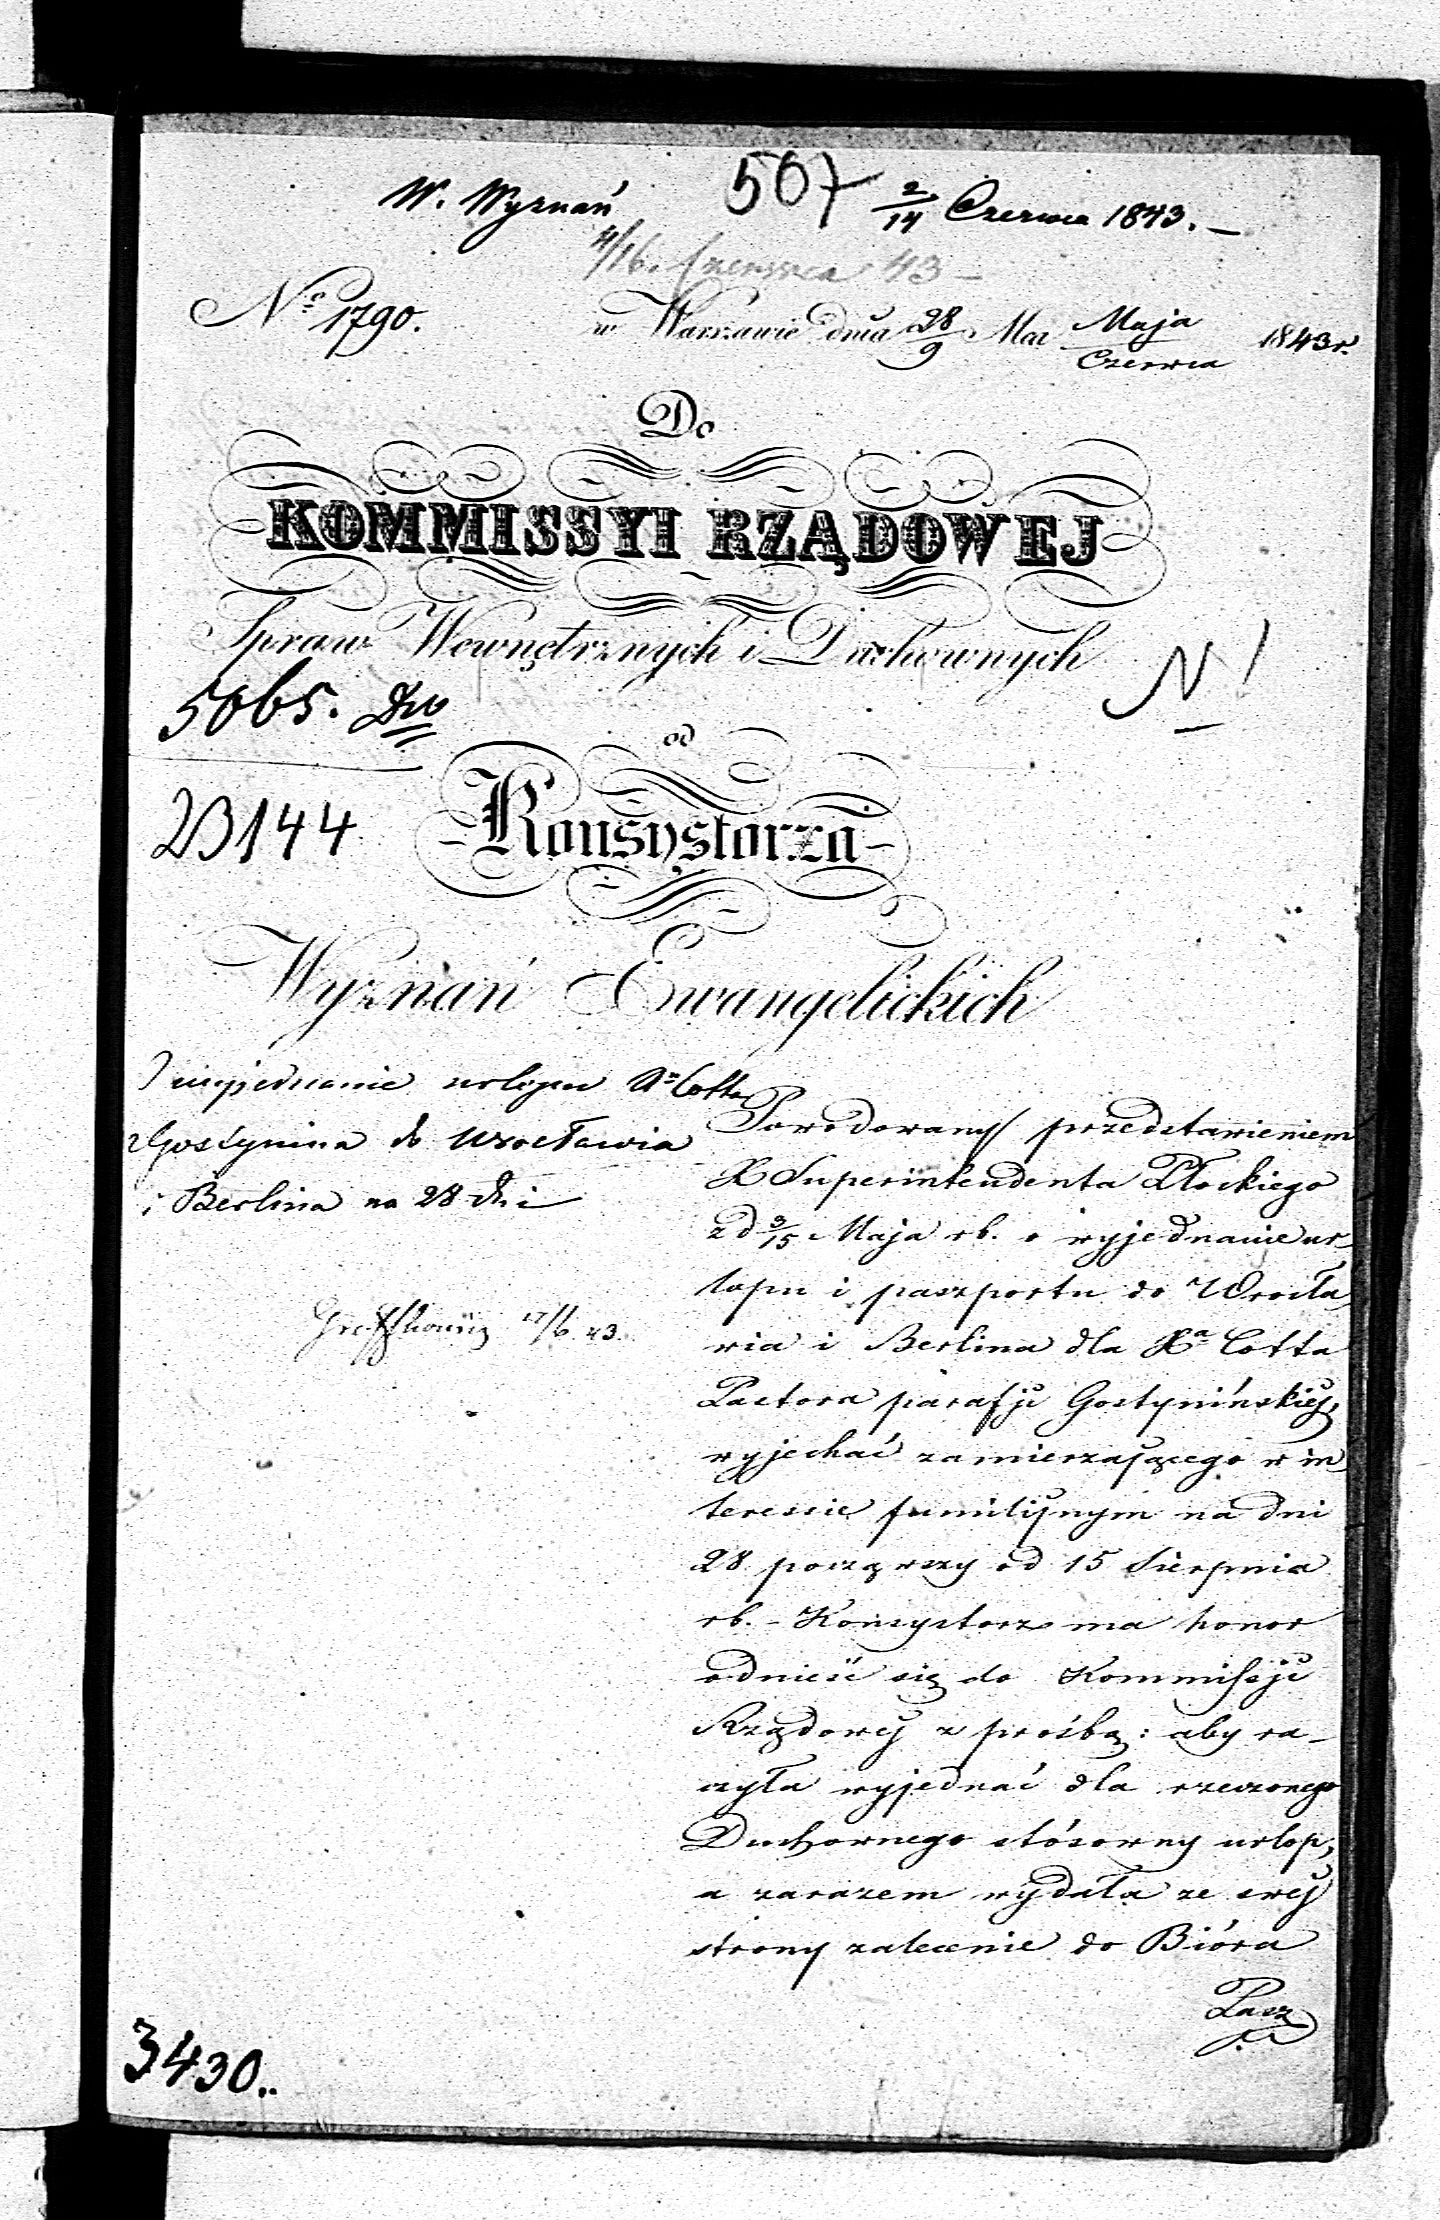 W. Wyznań 507 2/14 Czerwca 1843.
4/16. Czerwca 43
No 1790. w Warszawie dnia 28/9 Mca Maja/Czerwca 1843 r.
Do
KOMMISSYI RZĄDOWEJ
Spraw Wewnętrznych i Duchownych
N 1
5065.
od
23144
Konsystorza
Wyznań Ewangelickich
O wyjednanie urlopu Xa Cotta
z Gostynina do Wrocławia
i Berlina na 28 dni
17/6 43.
Powodowany przedstawieniem
X Superintendenta Płockiego
z d 3/15 Maja rb. o wyjednanie ur-
lopu i paszportu do Wrocła-
wia i Berlina dla Xa Cotta
Pastora parafji Gostynińskiej,
wyjechać zamierzającego w in-
teressie familijnym na dni
28 począwszy od 15 Sierpnia
rb. - Konsystorz ma honor
odnieść się do Kommissji
Rządowej z prośbą: aby ra-
czyła wyjednać dla rzeczonego
Duchownego stósowny urlop,
a zarazem wydała ze swej
strony zalecenie do Bióra
Pasz
3430.